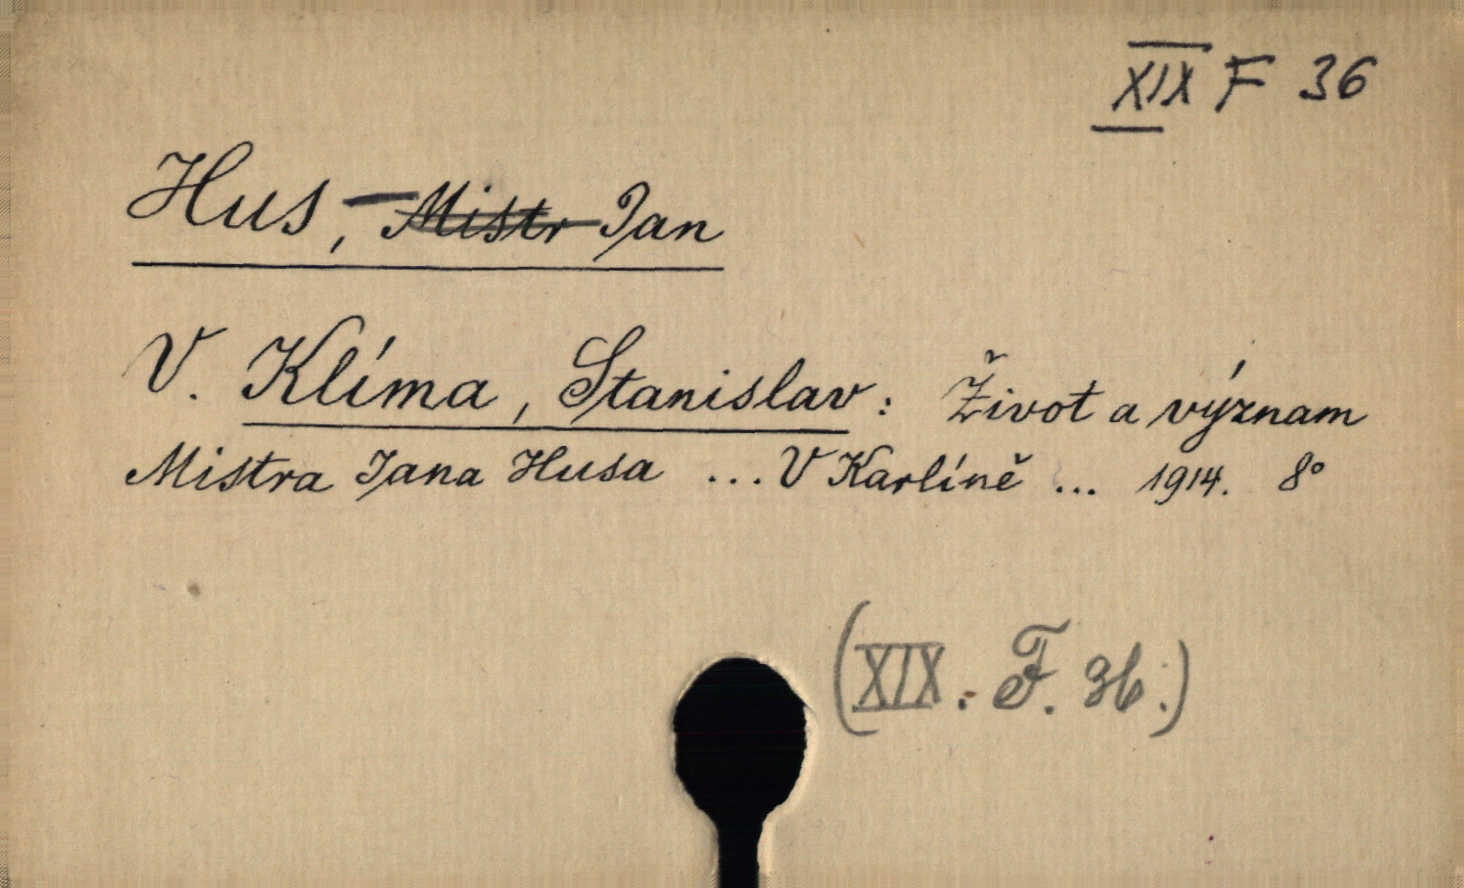 XIX F 36
Hus, Mistr Jan
V. Klíma, Stanislav: Život a význam
Mistra Jana Husa ... V Karlíně ... 1914. 8°
(XIX. F. 36.)